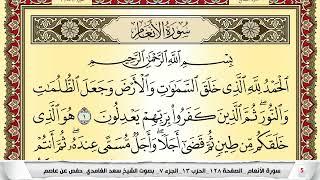 سُورَةُ الأَنْعَامِ
بِسْمِ اللَّهِ الرَّحْمَٰنِ الرَّحِيمِ
الْحَمْدُ لِلَّهِ الَّذِي خَلَقَ السَّمَٰوَٰتِ وَالْأَرْضَ وَجَعَلَ الظُّلُمَٰتِ
وَالنُّورَ ثُمَّ الَّذِينَ كَفَرُوا بِرَبِّهِمْ يَعْدِلُونَ ١ هُوَ الَّذِي
خَلَقَكُم مِّن طِينٍ ثُمَّ قَضَىٰٓ أَجَلًا وَأَجَلٌ مُّسَمًّى عِندَهُۥ ثُمَّ أَنتُمْ
5 سورة الأنعام _الصفحة ١٢٨_الحزب ١٣_الجزء ٧ _بصوت الشيخ سعد الغامدي_حفص عن عاصم